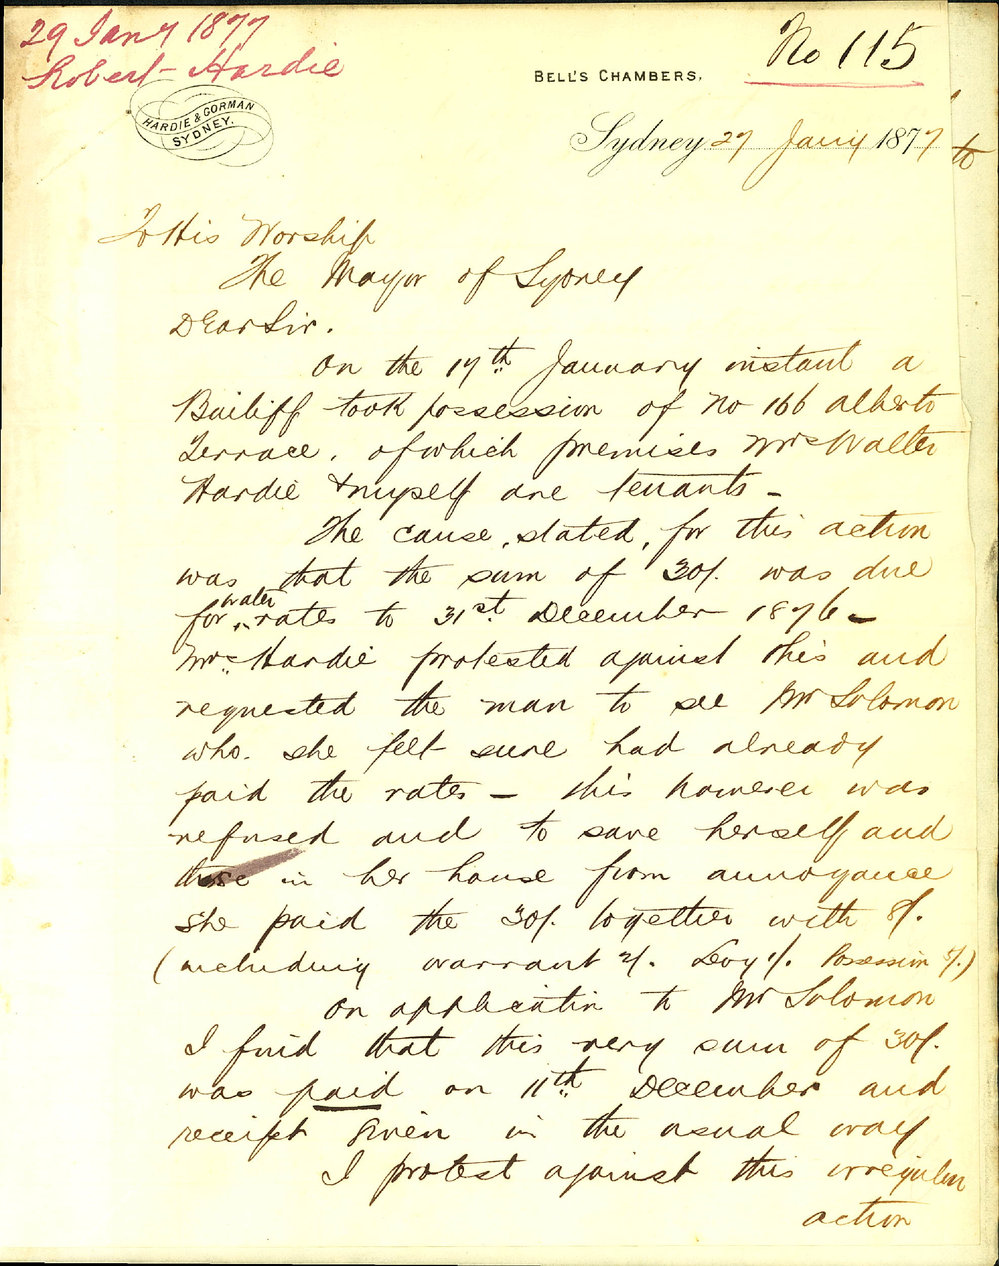 29 Jany 1877
Robert Hardie
No 115
BELL'S CHAMBERS,
HARDIE & GORMAN
SYDNEY.
Sydney 27 Jany 1877
To His Worship
The Mayor of Sydney
Dear Sir.
On the 17th January instant a
Bailiff took possession of No 166 Alberto
Terrace, of which premises Mrs Walter
Hardie & myself are tenants -
The cause, stated, for this action
was that the sum of 30/. was due
for water rates to 31st December 1876 -
Mrs Hardie protested against this and
requested the man to see Mr Solomon
who she felt sure had already
paid the rates - this however was
refused and to save herself and
those in her house from annoyance
she paid the 30/. together with 8/.
(including warrant 2/. Levy 1/. Possession 5/.)
On application to Mr Solomon
I find that this very sum of 30/.
was paid on 11th December and
receipt given in the usual way
I protest against this irregular
action